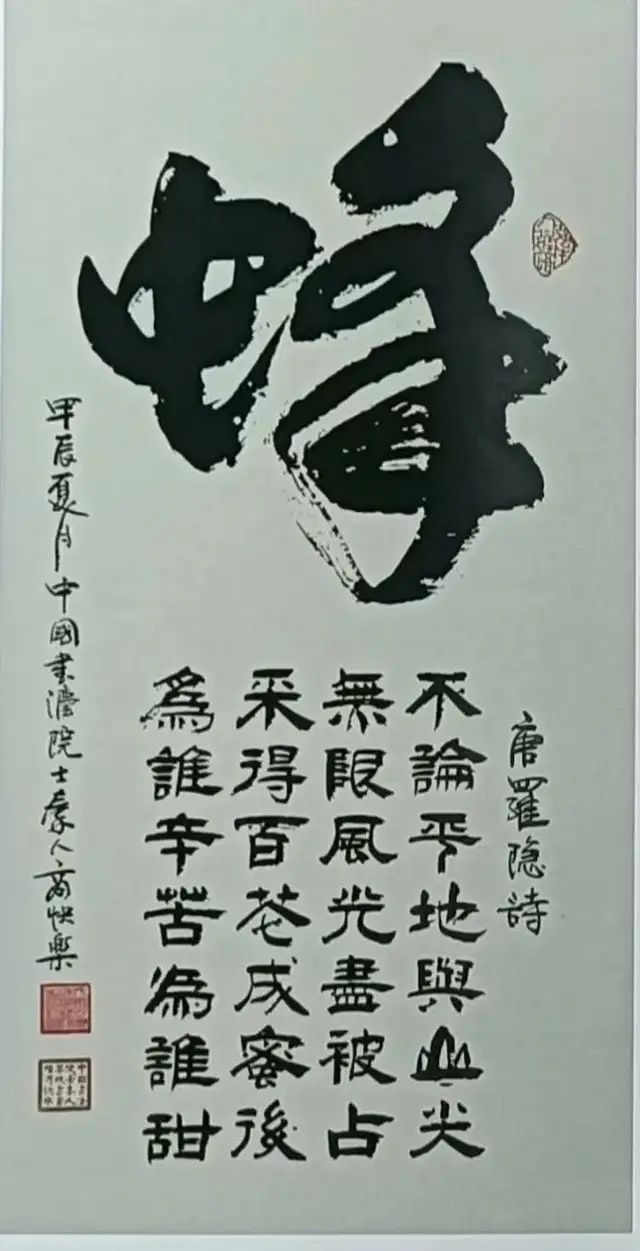 蜂
唐羅隐詩
不論平地與山尖
無限風光盡被占
采得百花成蜜後
為誰辛苦為誰甜
甲辰夏月中國書法院士泰人商快樂